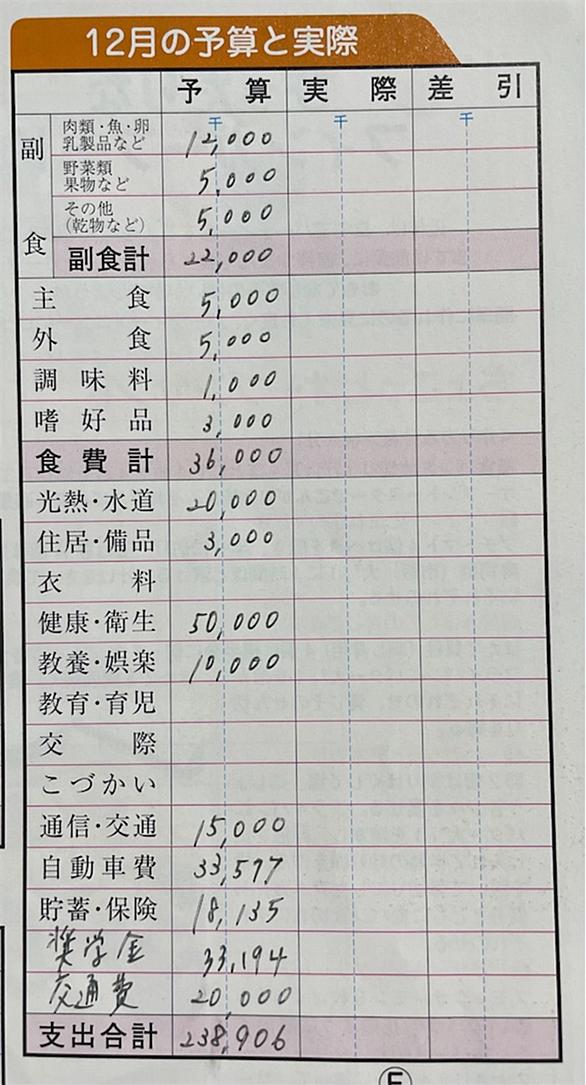 12月の予算と実際
予算 実際 差引
千 千 千
副食
肉類・魚・卵
乳製品など 12,000
野菜類
果物など 5,000
その他
(乾物など) 5,000
副食計 22,000
主食 5,000
外食 5,000
調味料 1,000
嗜好品 3,000
食費計 36,000
光熱・水道 20,000
住居・備品 3,000
衣料
健康・衛生 50,000
教養・娯楽 10,000
教育・育児
交際
こづかい
通信・交通 15,000
自動車費 33,597
貯蓄・保険 18,135
奨学金 33,194
交通費 20,000
支出合計 238,906